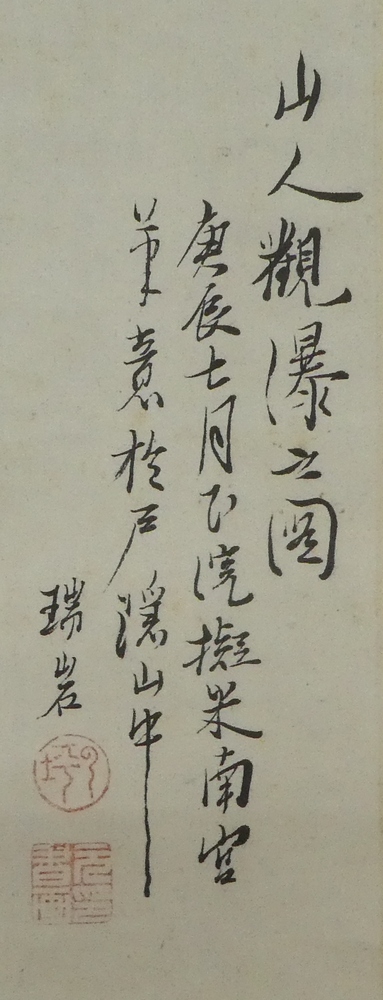 山人觀瀑之圖
庚辰七月下浣擬米南宮
筆意於戸隱山中
瑞岩